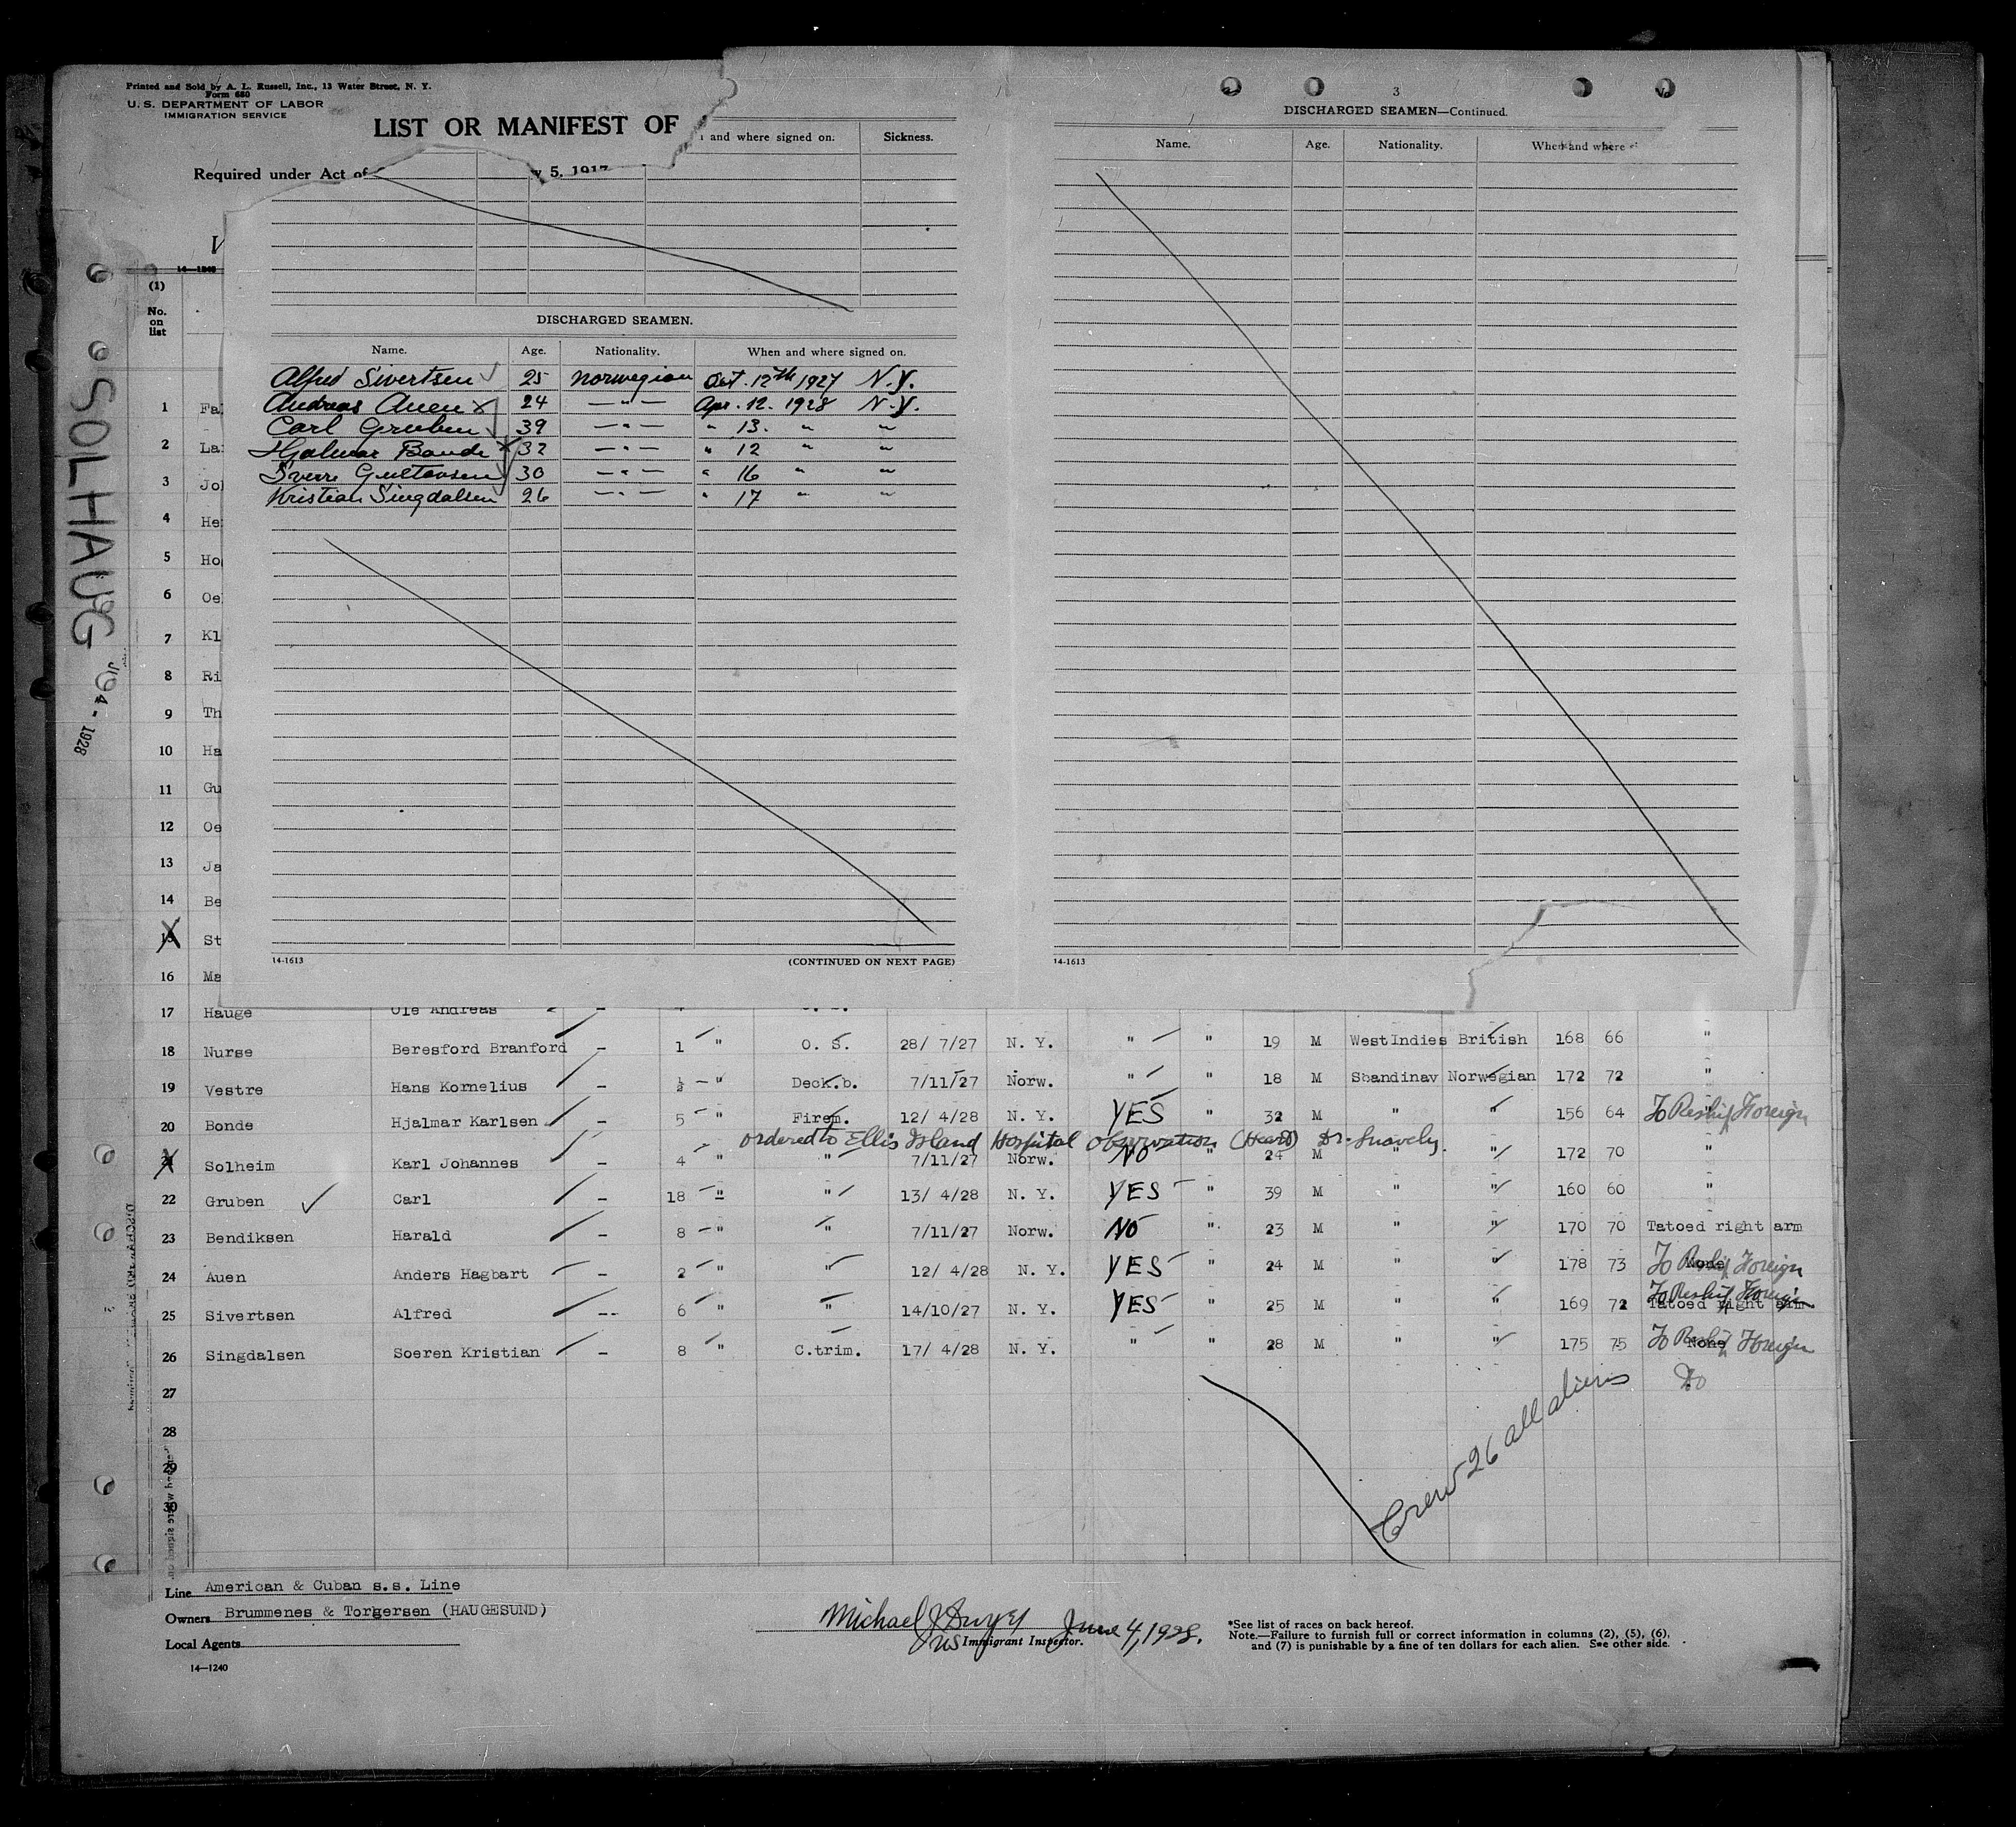 Printed and Sold by A. L. Russell, Inc., 13 Water Street, N. Y.
Form 680
U. S. DEPARTMENT OF LABOR
IMMIGRATION SERVICE
LIST OR MANIFEST OF
Required under Act of
5, 1917
and where signed on. Sickness.
14—1240
(1)
No. on list
SOLHAUG
4 - 1928
DISCHARGED SEAMEN.
Name. Age. Nationality. When and where signed on.
Alfred Sivertsen 25 norwegian Oct. 12th 1927 N.Y.
Andreas Auen 24 — " — Apr. 12. 1928 N.Y.
Carl Gruben 39 — " — " 13. " "
Hjalmar Bonde 32 — " — " 12 " "
Sverre Gustavsen 30 — " — " 16 " "
Kristian Singdalsen 26 — " — " 17 " "
14-1613 (CONTINUED ON NEXT PAGE)
3
DISCHARGED SEAMEN—Continued.
Name. Age. Nationality. When and where
14-1613
1 Fa
2 La
3 Jo
4 He
5 Ho
6 Oe
7 Kl
8 Ri
9 Th
10 Ha
11 Gu
12 Oe
13 Ja
14 Be
15 St
16 Ma
17 Hauge Ole Andreas
18 Nurse Beresford Branford — 1 " O. S. 28/ 7/27 N. Y. " " 19 M WestIndies British 168 66 "
19 Vestre Hans Kornelius — ½ " Deck.b. 7/11/27 Norw. " " 18 M Scandinav Norwegian 172 72 "
20 Bonde Hjalmar Karlsen — 5 " Firem. 12/ 4/28 N. Y. YES " 32 M " " 156 64 " To Reship Foreign
ordered to Ellis Island Hospital observation (Heart) Dr. Snavely.
21 Solheim Karl Johannes — 4 " " 7/11/27 Norw. NO " 24 M " " 172 70 "
22 Gruben Carl — 18 " " 13/ 4/28 N. Y. YES " 39 M " " 160 60 "
23 Bendiksen Harald — 8 " " 7/11/27 Norw. NO " 23 M " " 170 70 Tatoed right arm
24 Auen Anders Hagbart — 2 " " 12/ 4/28 N. Y. YES " 24 M " " 178 73 None To Reship Foreign
25 Sivertsen Alfred -- 6 " " 14/10/27 N. Y. YES " 25 M " " 169 72 Tatoed right arm To Reship Foreign
26 Singdalsen Soeren Kristian — 8 " C.trim. 17/ 4/28 N. Y. " " 28 M " " 175 75 None To Reship Foreign
27 Do
28
29
30
Crew 26 all aliens
Line American & Cuban s.s. Line
Owners Brummenes & Torgersen (HAUGESUND)
Local Agents
14—1240
Michael J Dwyer June 4, 1928.
US Immigrant Inspector.
*See list of races on back hereof.
Note.—Failure to furnish full or correct information in columns (2), (5), (6),
and (7) is punishable by a fine of ten dollars for each alien. See other side.